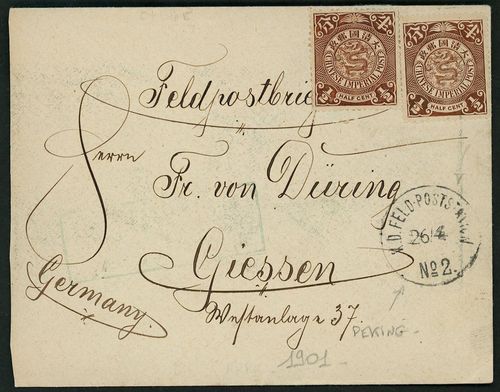 大清國郵政
半 分
CHINESE IMPERIAL POST
1/2 1/2
HALF CENT
大清國郵政
半 分
CHINESE IMPERIAL POST
1/2 1/2
HALF CENT
Feldpostbrief
Herrn
Fr. von Düring
K.D. FELD-POSTSTATION
26/4
No 2.
Giessen
Germany.
Westanlage 37.
PEKING
1901